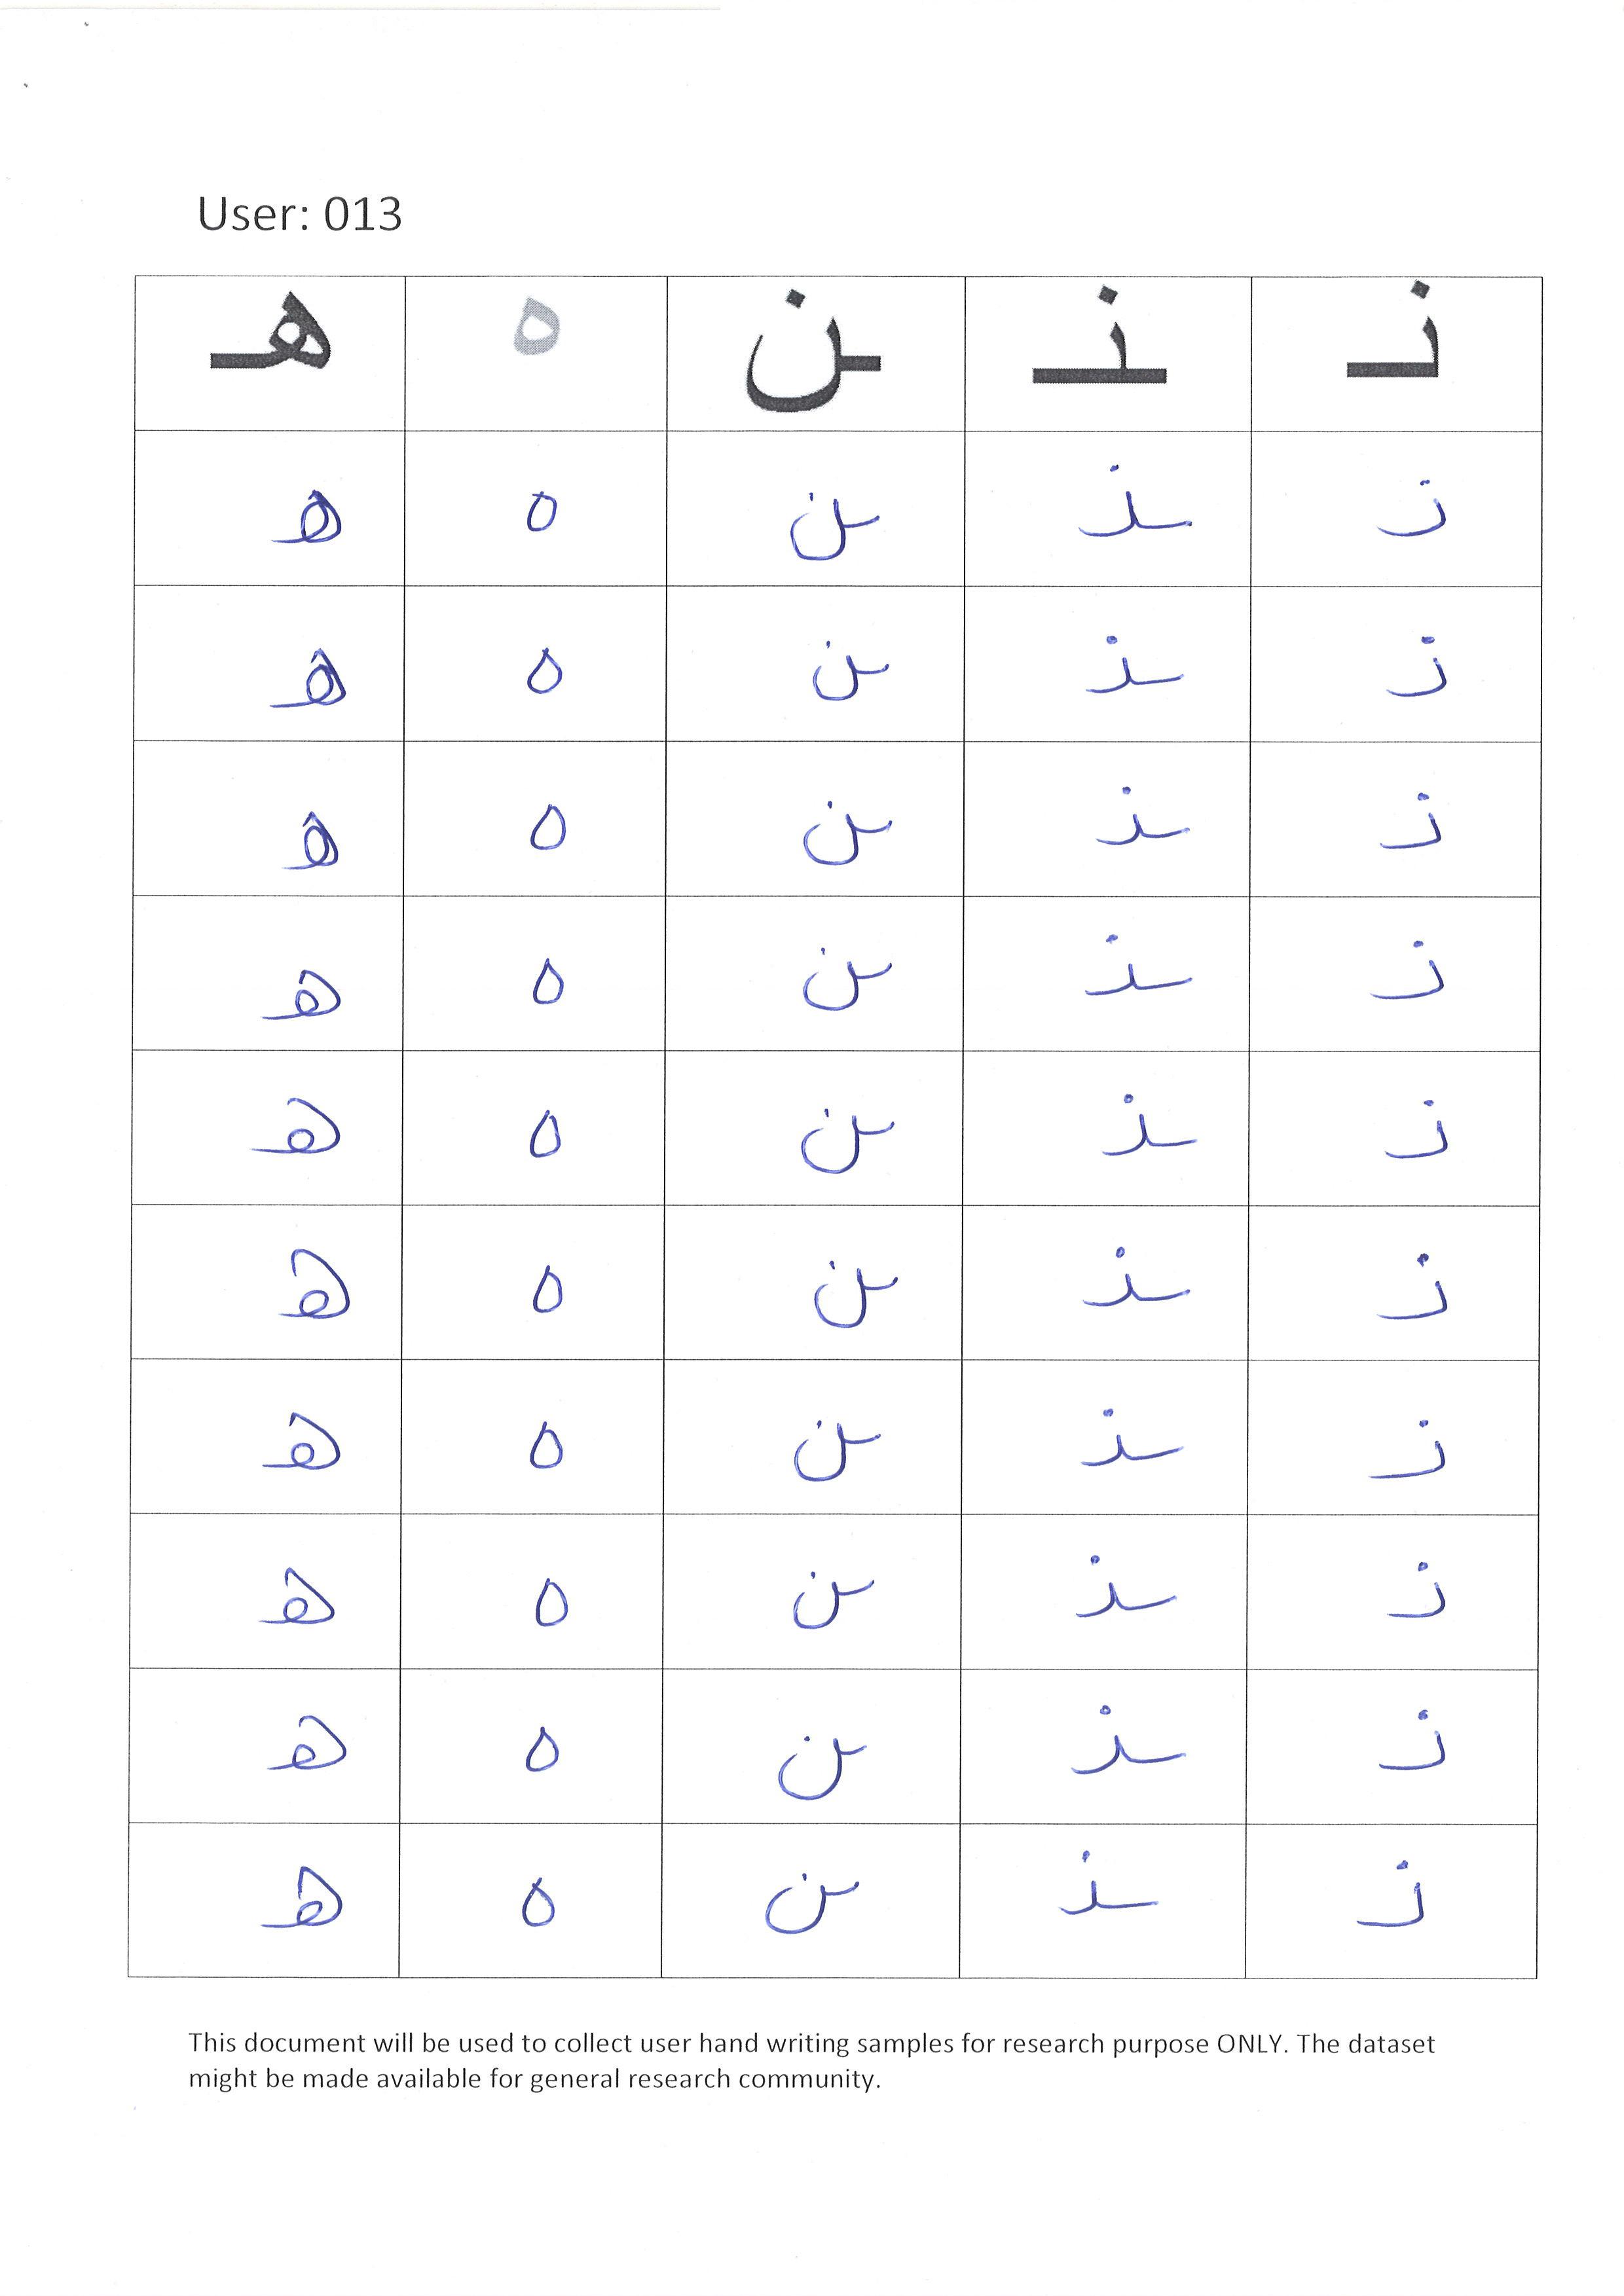 User: 013
نـ ـنـ ـن ه هـ
نـ ـنـ ـن ه هـ
نـ ـنـ ـن ه هـ
نـ ـنـ ـن ه هـ
نـ ـنـ ـن ه هـ
نـ ـنـ ـن ه هـ
نـ ـنـ ـن ه هـ
نـ ـنـ ـن ه هـ
نـ ـنـ ـن ه هـ
نـ ـنـ ـن ه هـ
نـ ـنـ ـن ه هـ
This document will be used to collect user hand writing samples for research purpose ONLY. The dataset
might be made available for general research community.